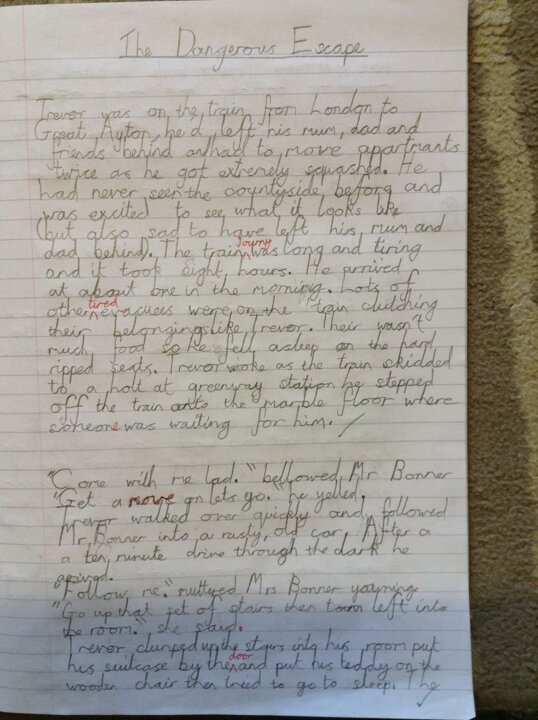 The Dangerous Escape
Trevor was on the train from London to
Great Ayton, he'd left his mum, dad and
friends behind and had to move apartmants
twice as he got extremely squashed. He
had never seen the countyside before and
was excited to see what it looks like
(but also sad to have left his mum and
dad behind). The train journy was long and tiring
and it took eight hours. He arrived
at about one in the morning. Lots of
other tired evacuees were on the train clutching
their belongings like Trevor. Their wasn't
much food so he fell asleep on the hard
ripped seats. Trevor woke as the train skidded
to a holt at greenway station he stepped
off the train onto the marble floor where
someone was waiting for him.
"Come with me lad." bellowed Mr Bonner
"Get a move on lets go." he yelled.
Trevor walked over quickly and followed
Mr Bonner into a rusty, old car. After a
a ten minute drive through the dark he
arrived.
"Follow me." muttered Mrs Bonner yawning.
"Go up that set of stairs then turn left into
the room." she said.
Trevor clumped up the stairs into his room put
his suitcase by the door and put his teddy on the
wooden chair then tried to go to sleep. The